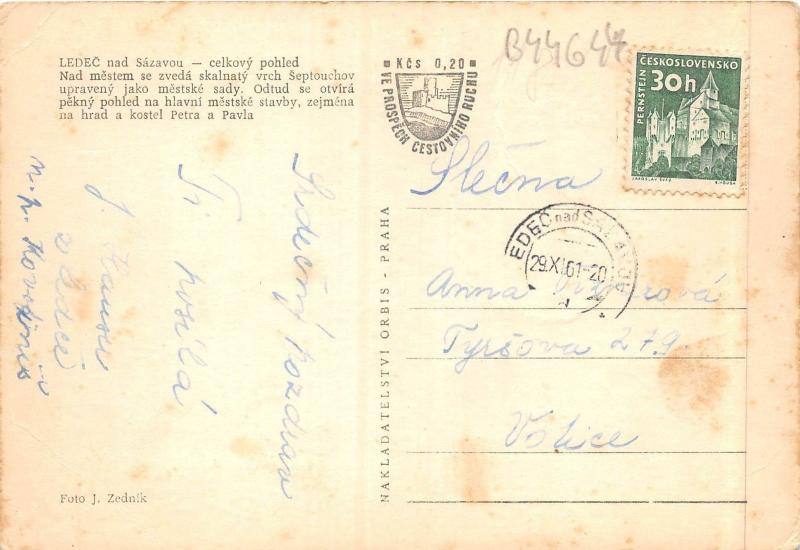 LEDEČ nad Sázavou — celkový pohled
Nad městem se zvedá skalnatý vrch Šeptouchov
upravený jako městské sady. Odtud se otvírá
pěkný pohled na hlavní městské stavby, zejména
na hrad a kostel Petra a Pavla
Srdečný pozdrav
Ti posílá
J.
z Ledče
n. p. Kovofiniš
Foto J. Zedník
NAKLADATELSTVÍ ORBIS - PRAHA
Kčs 0,20
VE PROSPĚCH CESTOVNÍHO RUCHU
B44644
ČESKOSLOVENSKO
30h
PERNŠTEJN
JAROSLAV ŠVÁB
LEDEČ nad SÁZAVOU
29.XI.61-20
Slečna
Anna
Tyršova 279
Votice